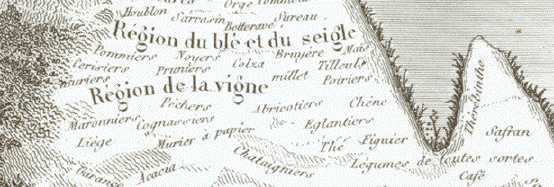 Orge
Houblon Sarrasin Betterave Sureau
Région du blé et du seigle
Pommiers Noyers Colza Bruyère Maïs
Cerisiers Pruniers millet Tilleuls
muriers Région de la vigne Poiriers
Pêchers Abricotiers Chêne
Marronniers Cognassiers Eglantiers
Liège Murier à papier Thé Figuier
Térébinthe Safran
Chataigniers Légumes de toutes sortes
Garance Acacia Café